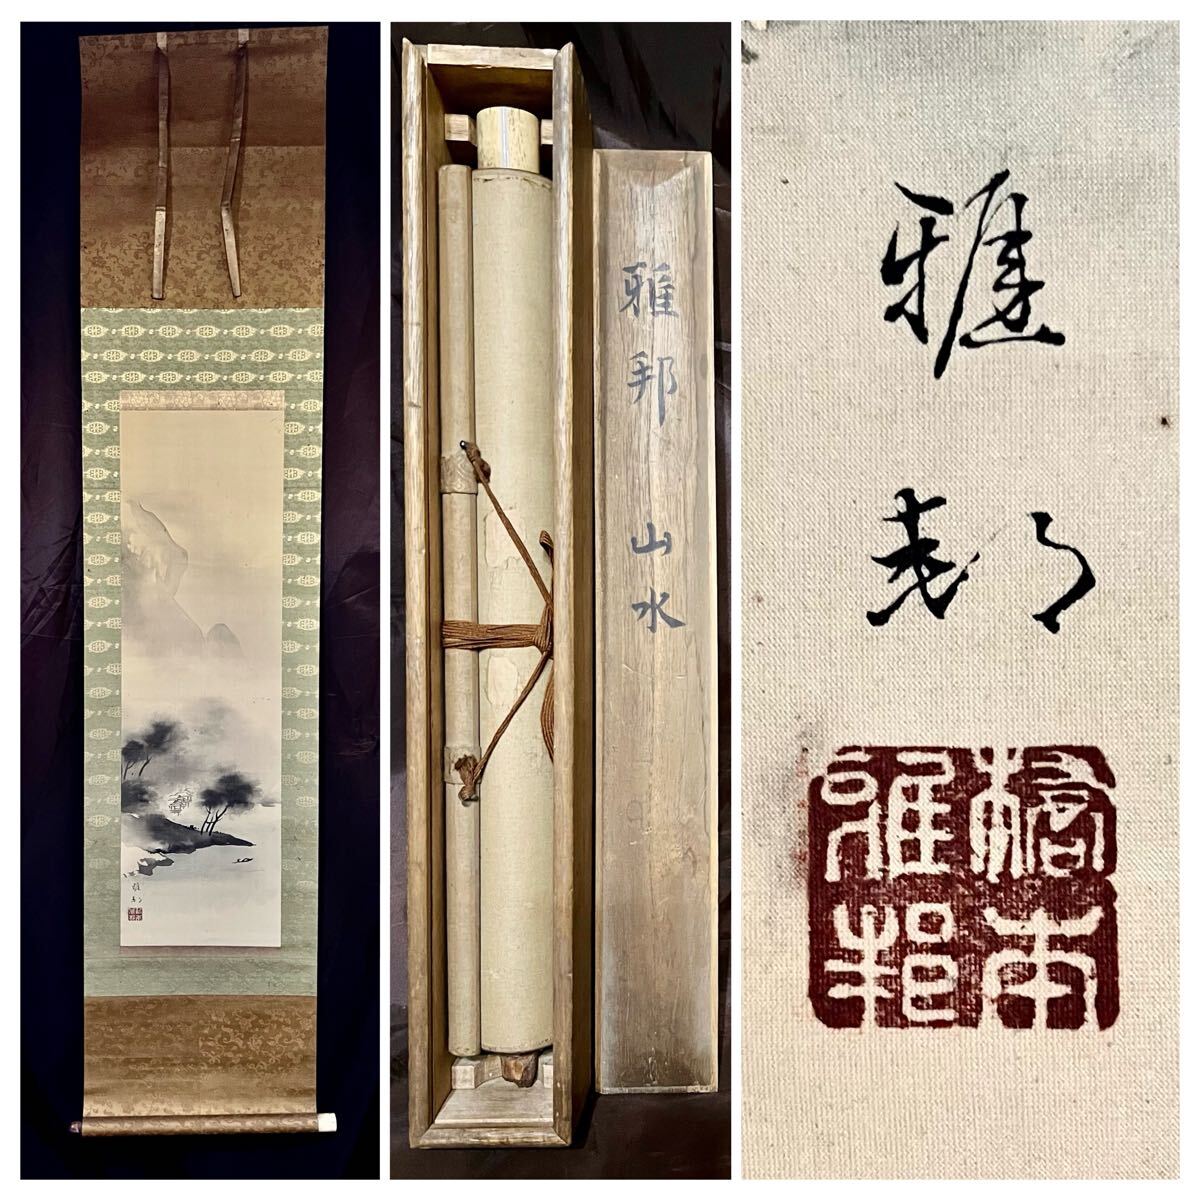 雅邦 山水
雅邦
橋本
雅邦